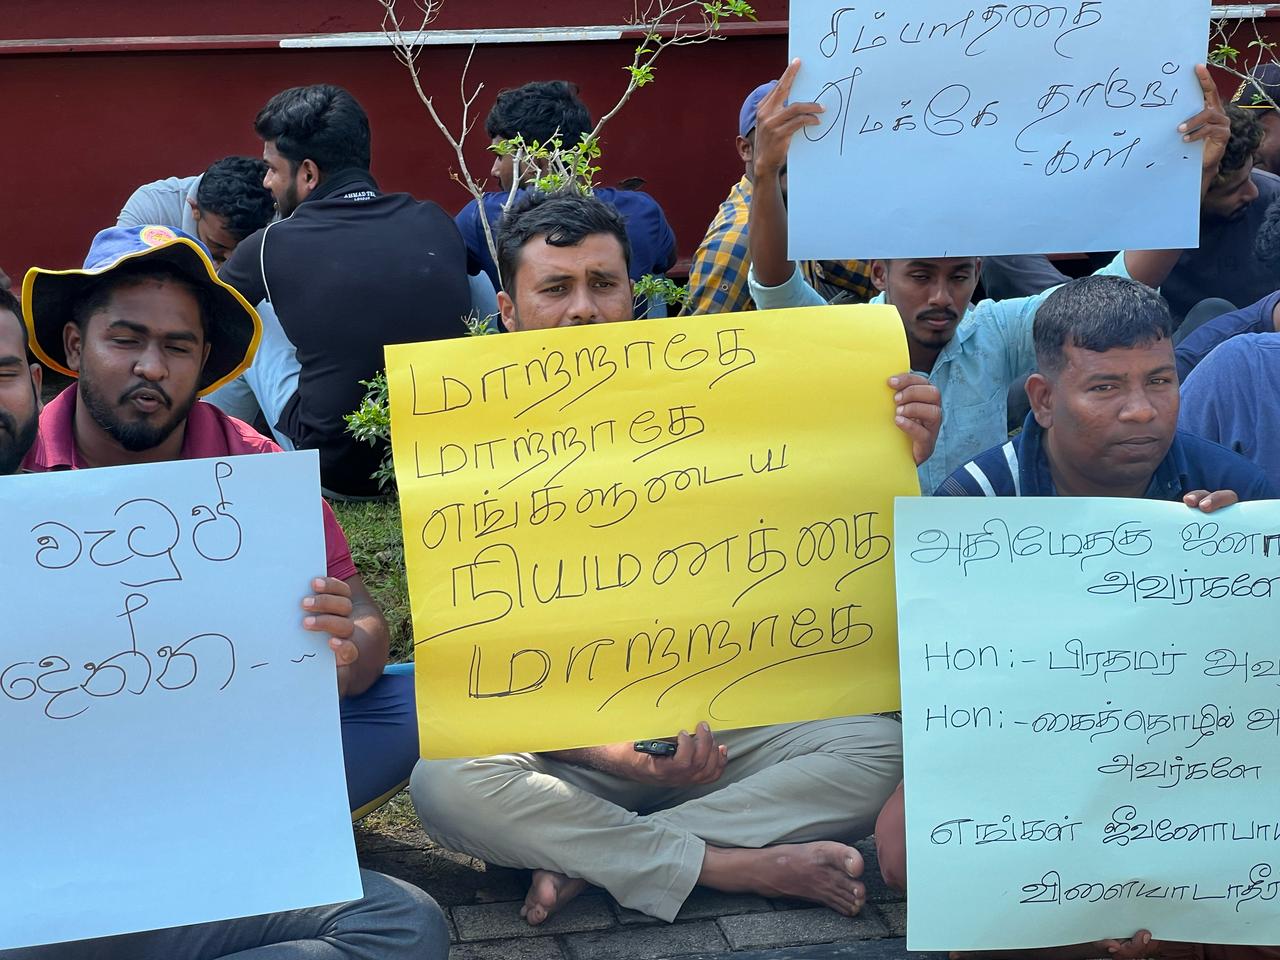 சம்பளத்தை
எமக்கே தாருங்
-கள்..
மாற்றாதே
மாற்றாதே
எங்களுடைய
நியமனத்தை
மாற்றாதே
වැටුප්
දෙන්න
அதிமேதகு ஜனா
அவர்களே
Hon:- பிரதமர் அவ
Hon:- கைத்தொழில் அ
அவர்களே
எங்கள் ஜீவனோபா
விளையாடாதீர்